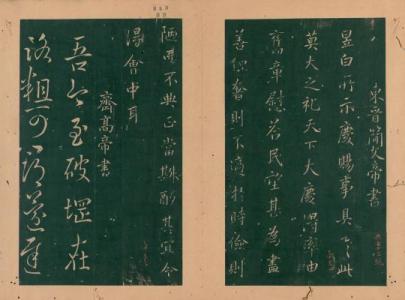 東晉簡文帝書
昱白所示慶賜事具之此
莫大之礼天下大慶得率由
舊章慰答民望其為盡
善但奢則不濟於時儉則
陋而不典正當斟酌其宜令
得會中耳
齊高帝書
吾以至破堽在
路粗可